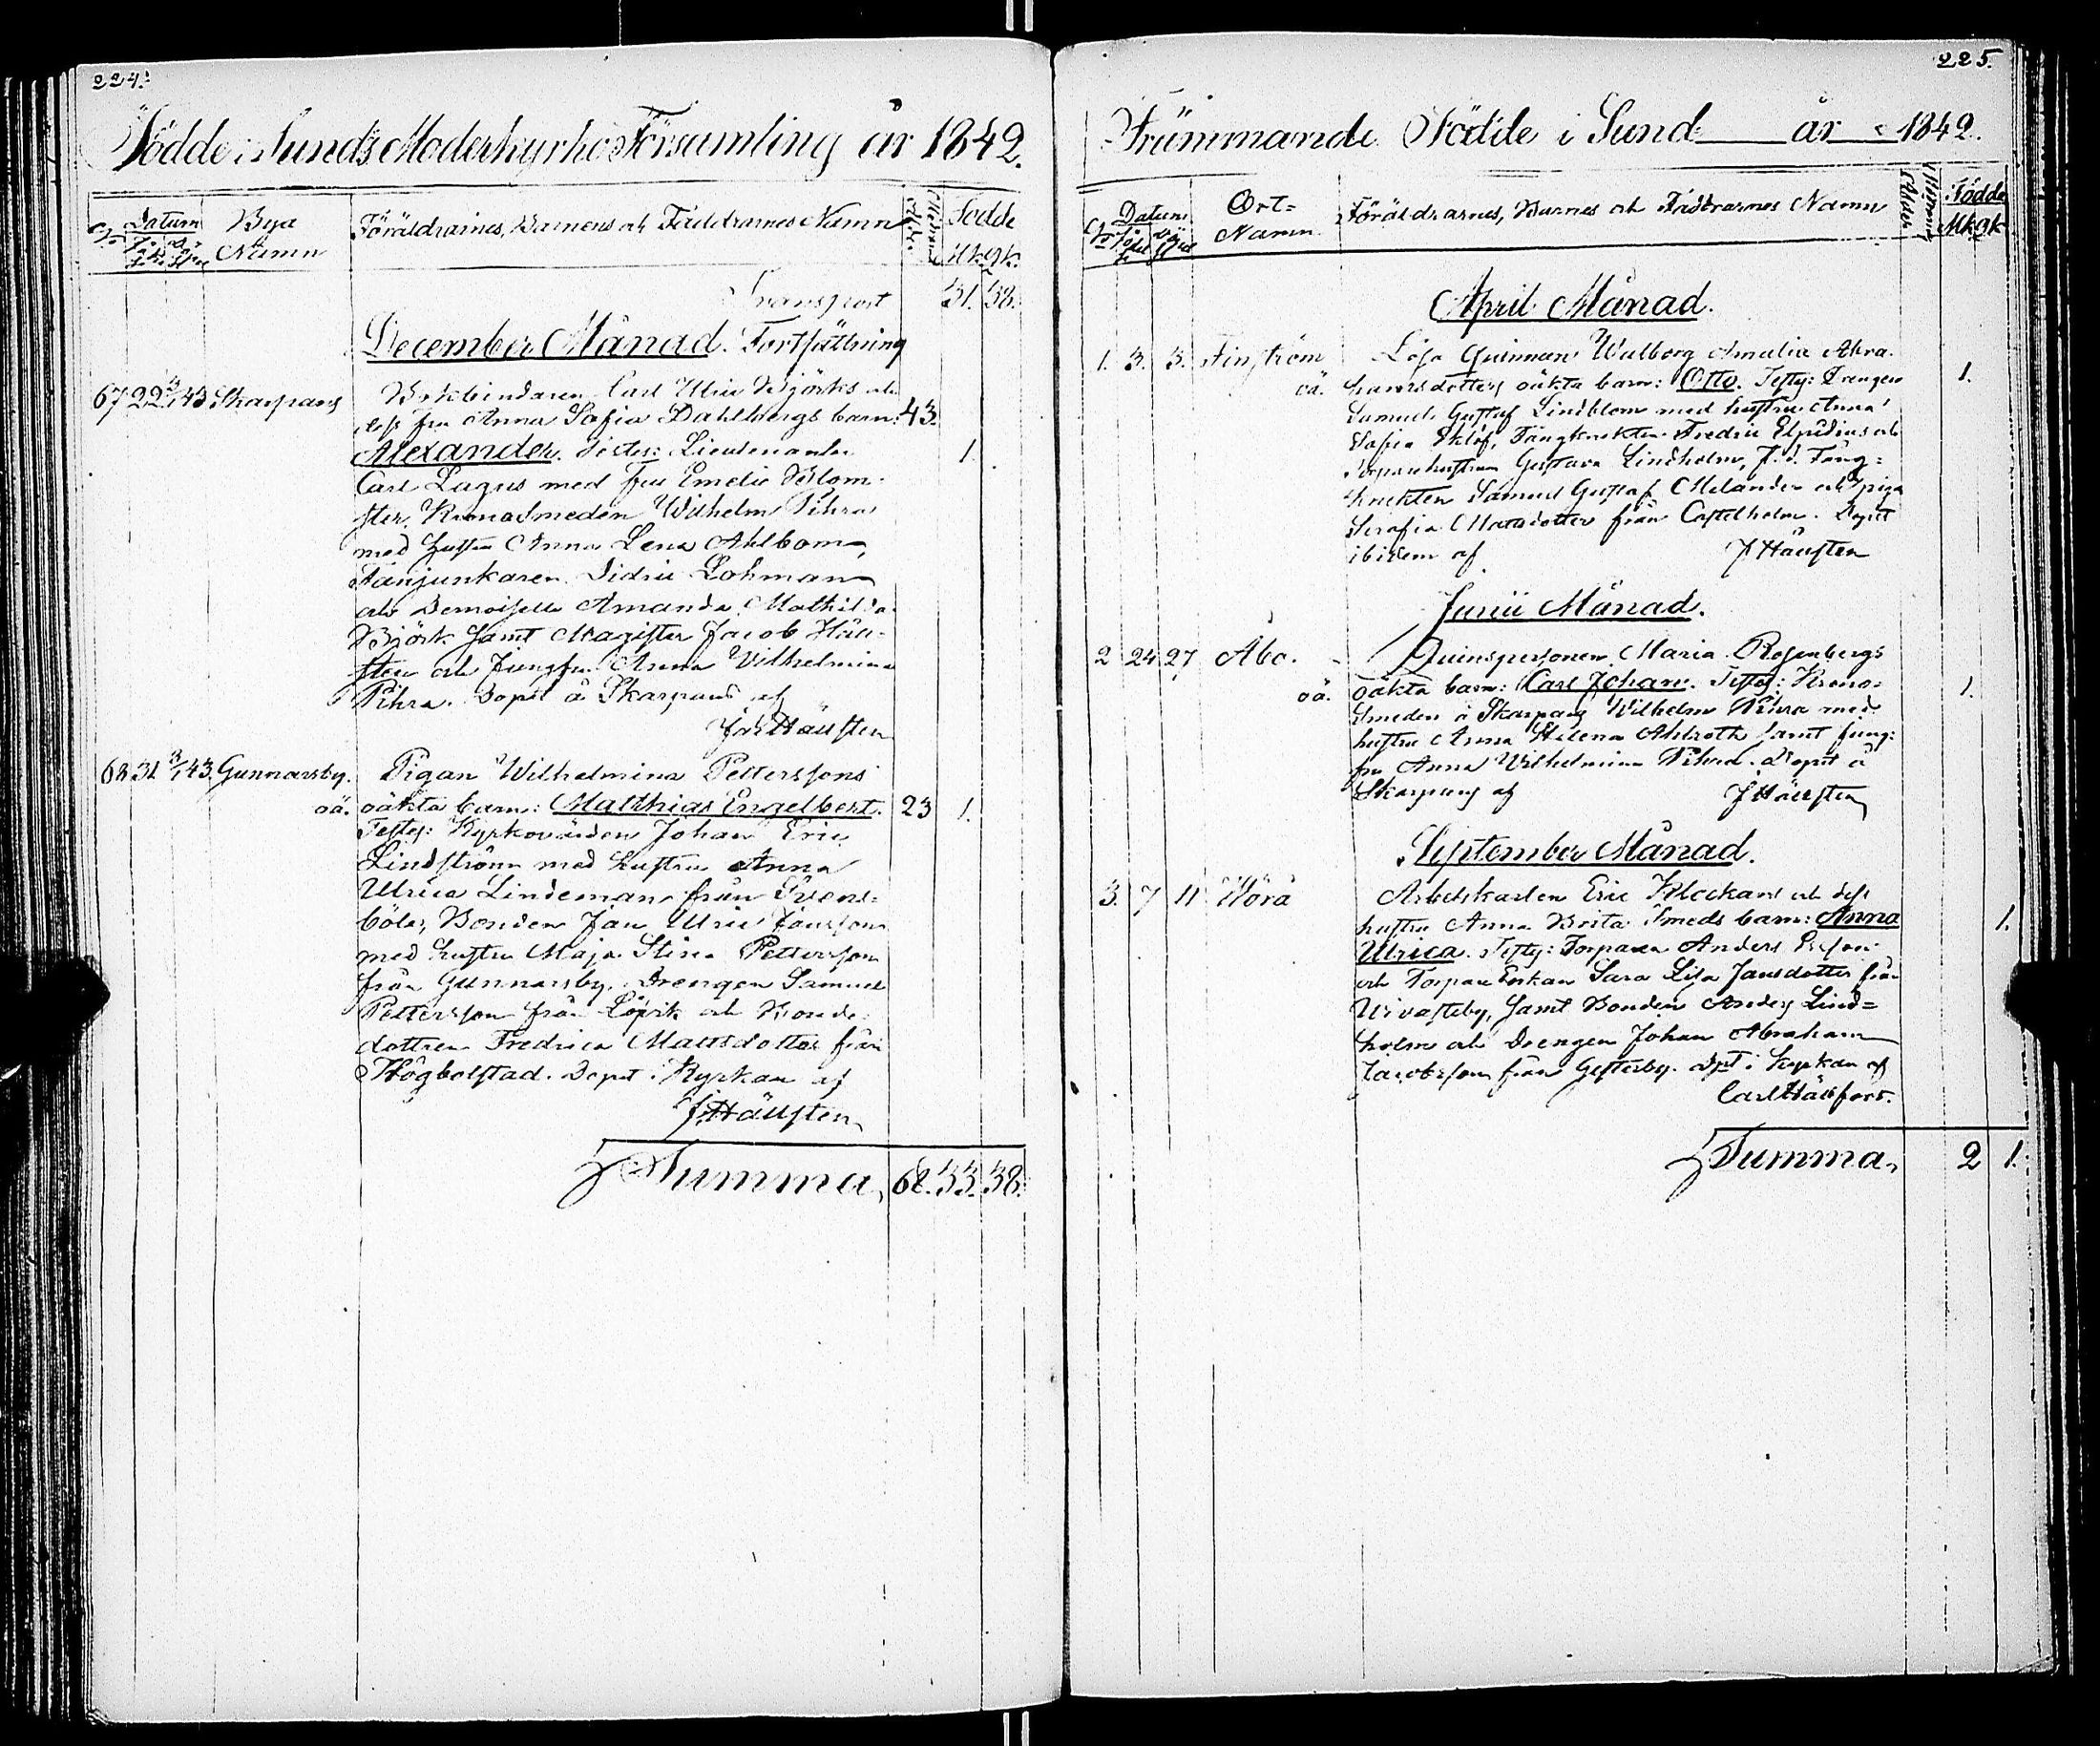 224.
Födde i Sunds Moderkyrko Församling år 1842.
No Datum Bya Namn Föräldrarnes, Barnens och Faddrarnes Namn Födde
Mk. Qk.
Transport 31. 38.
December Månad. Fortsättning
67 22 3/1 43 Skarpans Bokbindaren Carl Ulric Björks och
dess fru Anna Sofia Dahlbergs barn: 43.
Alexander. Testes: Lieutenanten 1.
Carl Lagus med fru Emelie Blom-
ster, Kronosmeden Wilhelm Pihra
med hustru Anna Lena Ahlbom,
Fanjunkaren Didric Lohman
och Demoiselle Amanda Mathilda
Björk samt Magister Jacob Häu-
sten och Jungfru Anna Vilhelmina
Pihra. Döpt å Skarpans af
Jac Häusten
68 31 3/1 43. Gunnarsby. Pigan Wilhelmina Petterssons
oä. oäkta barn: Matthias Engelbert. 23 1.
Testes: Kyrkovärden Johan Eric
Lindström med hustru Anna
Ulrica Lindeman från Svens-
böle, Bonden Jan Ulric Jansson
med hustru Maja Stina Pettersson
från Gunnarsby. Drengen Samuel
Pettersson från Lövik och Bonde-
dottren Fredrica Mattsdotter från
Högbolstad. Döpt i Kyrkan af
J. Häusten
Summa, 68. 33. 38.
225.
Främmande Födde i Sund år 1842.
No Datum Ort= Namn Föräldrarnes, Barnes och Faddrarnes Namn Födde
Mk Qk
April Månad.
1. 3. 3. Finström Lösa Quinnan Walborg Amalia Abra-
oä. hamsdotters oäkta barn: Otto. Testes: Drengen 1.
Samuel Gustaf Lindblom med hustru Anna
Sofia Eklöf, Fångknekten Fredric Elfidius och
Torparehustrun Gustava Lindholm, f.d. Fång=
knekten Samuel Gustaf Melander och pigan
Serafia Matsdotter från Castelholm. Döpt
ibidem af J Häusten
Junii Månad.
2 24 27 Åbo. Quinspersonen Maria Rosenbergs
oä. oäkta barn: Carl Johan. Testes: Krono- 1.
smeden å Skarpans Wilhelm Pihra med
hustru Anna Helena Ahlroth samt jung-
fru Anna Wilhelmina Pihra. Döpt å
Skarpans af J Häusten
September Månad.
3. 7 11 Wörå Arbetskarlen Eric Klockars och dess
hustru Anna Brita Smeds barn: Anna 1.
Ulrica. Testes: Torparen Anders Ersson
och Torpare Enkan Sara Lisa Jansdotter från
Wivastby, samt Bonden Anders Lind=
holm och Drengen Johan Abraham
Jacobsson från Gesterby. Dpt i kyrkan af
Carl Häusfors.
Summa, 2 1.